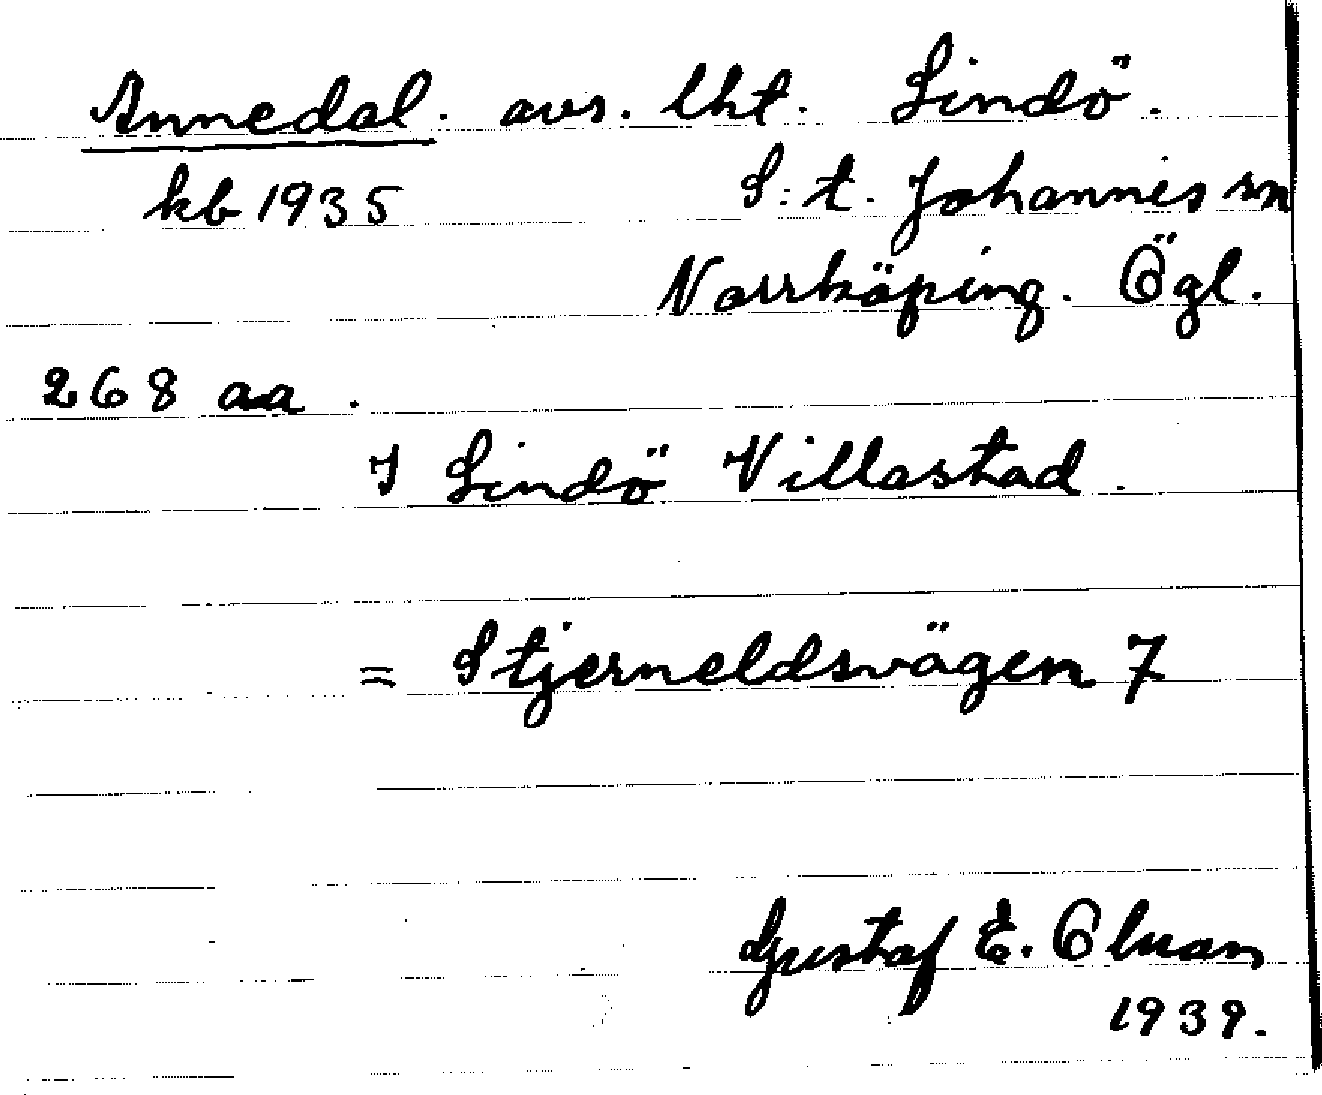 Annedal. avs. lht. Lindö.
kb 1935 S:t. Johannis sn
Norrköping. Ögl.
268 aa.
I Lindö Villastad.
= Stjerneldsvägen 7
Gustaf E.
1939.